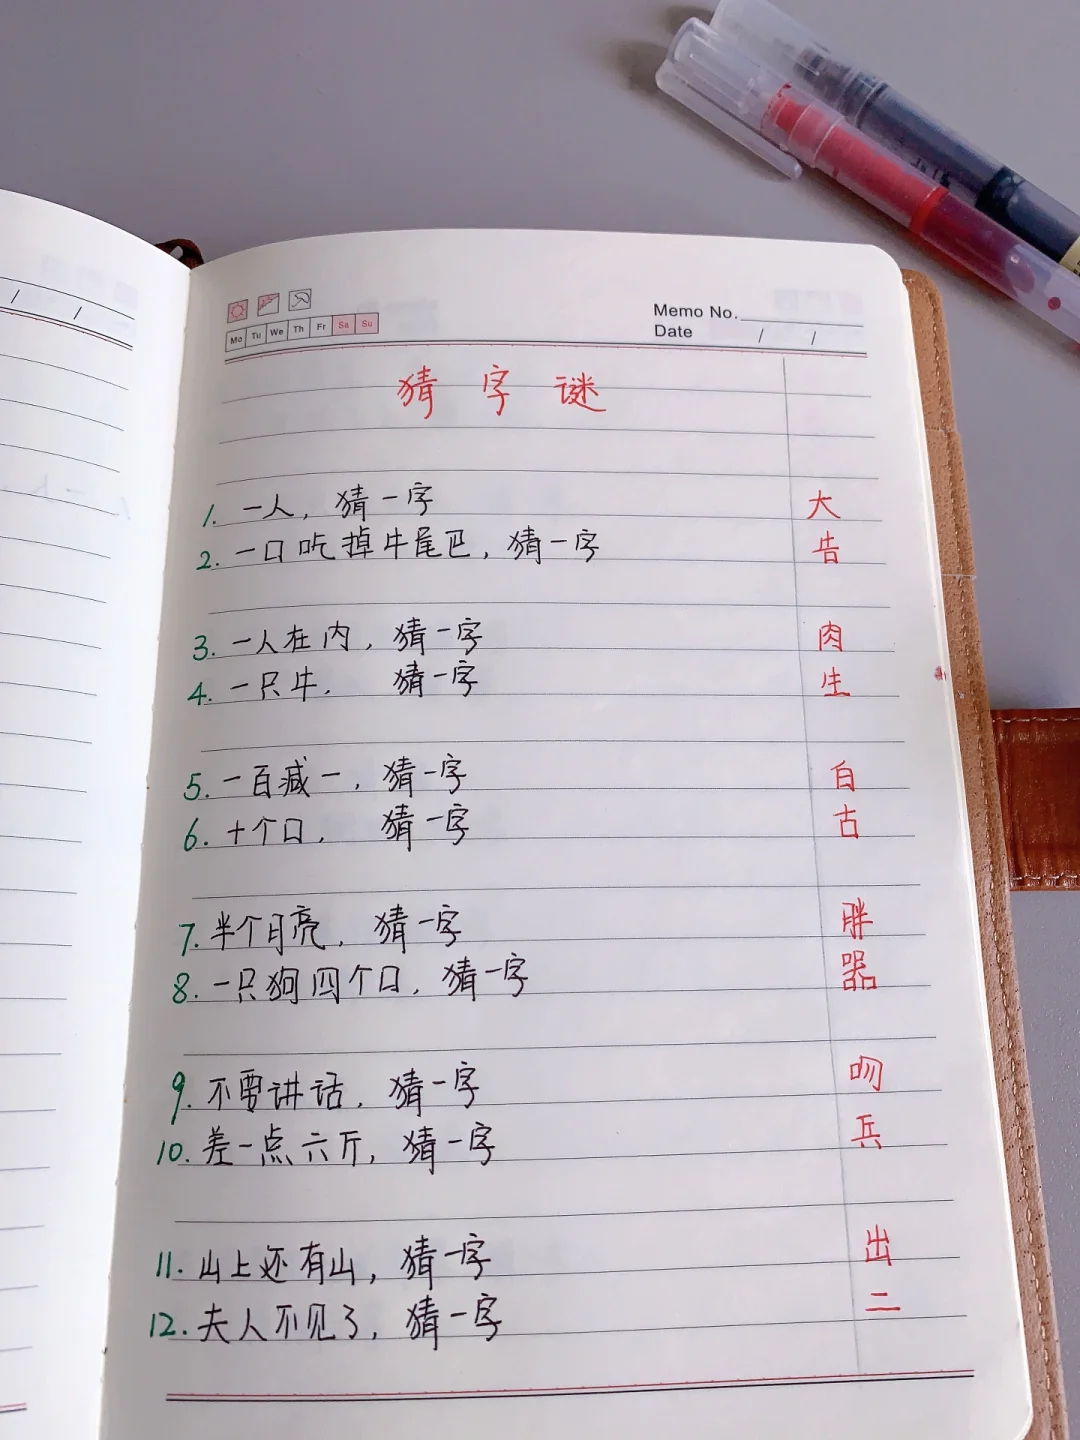 Mo Tu We Th Fr Sa Su
Memo No.
Date / /
猜 字 谜
1. 一人, 猜一字 大
2. 一口吃掉牛尾巴, 猜一字 告
3. 一人在内, 猜一字 肉
4. 一只牛. 猜一字 生
5. 一百减一, 猜一字 白
6. 十个口, 猜一字 古
7. 半个月亮, 猜一字 胖
8. 一只狗四个口, 猜一字 器
9. 不要讲话, 猜一字 吻
10. 差一点六斤, 猜一字 兵
11. 山上还有山, 猜一字 出
12. 夫人不见了, 猜一字 二